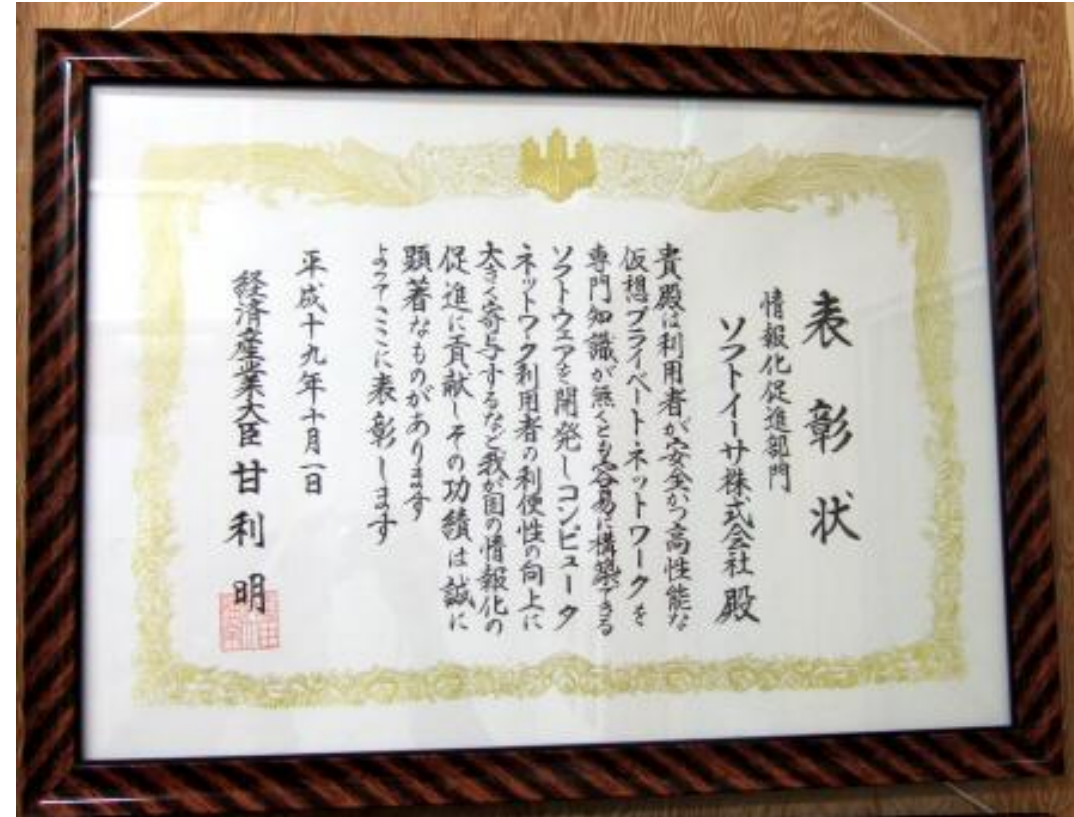 表彰状
情報化促進部門
ソフトイーサ株式会社 殿
貴殿は利用者が安全かつ高性能な
仮想プライベートネットワークを
専門知識が無くとも容易に構築できる
ソフトウェアを開発しコンピュータ
ネットワーク利用者の利便性の向上に
大きく寄与するなど我が国の情報化の
促進に貢献しその功績は誠に
顕著なものがあります
よってここに表彰します
平成十九年十月一日
経済産業大臣 甘利 明